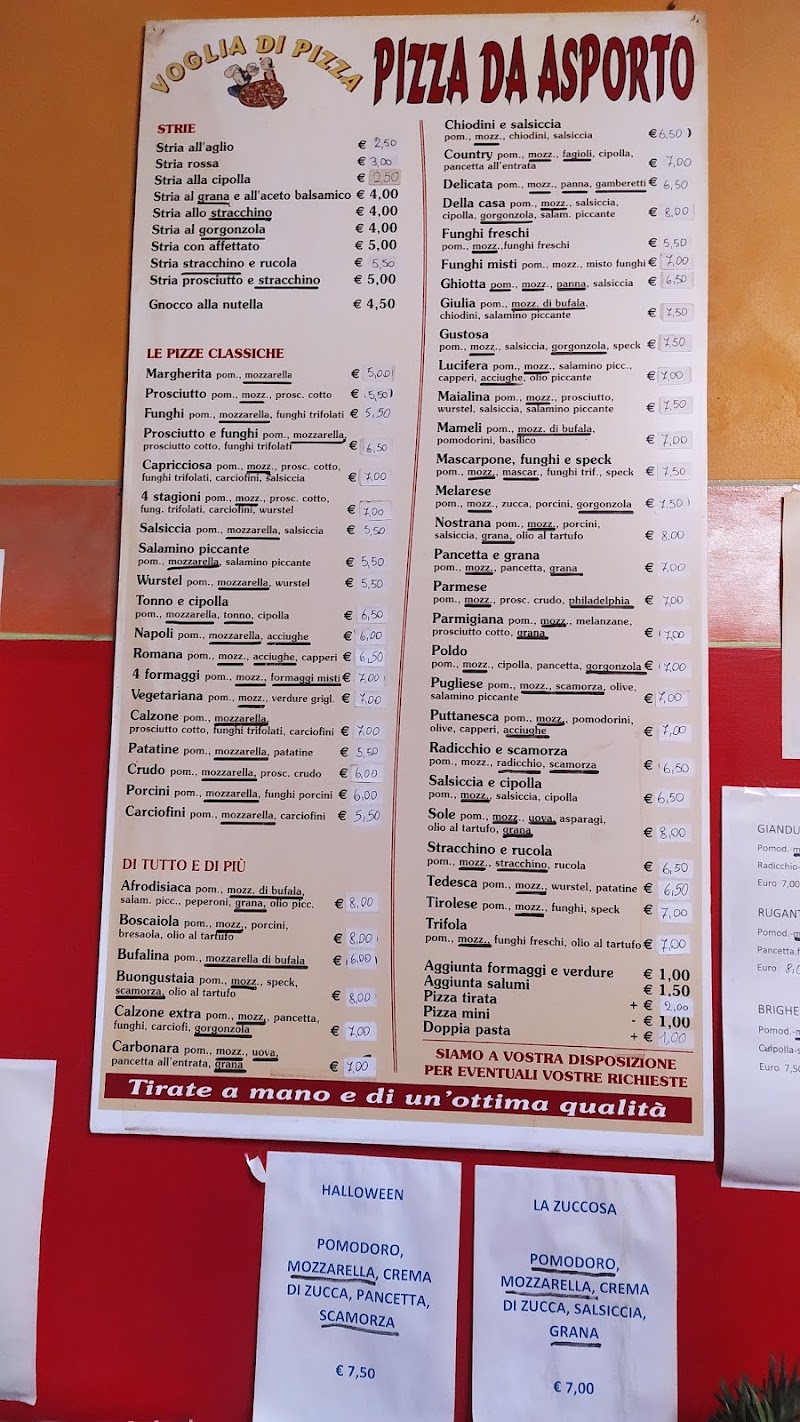 VOGLIA DI PIZZA
PIZZA DA ASPORTO
STRIE
Stria all'aglio € 2,50
Stria rossa € 3,00
Stria alla cipolla € 2,50
Stria al grana e all'aceto balsamico € 4,00
Stria allo stracchino € 4,00
Stria al gorgonzola € 4,00
Stria con affettato € 5,00
Stria stracchino e rucola € 5,50
Stria prosciutto e stracchino € 5,00
Gnocco alla nutella € 4,50
LE PIZZE CLASSICHE
Margherita pom., mozzarella € 5,00
Prosciutto pom., mozz., prosc. cotto € 5,50
Funghi pom., mozzarella, funghi trifolati € 5,50
Prosciutto e funghi pom., mozzarella,
prosciutto cotto, funghi trifolati € 6,50
Capricciosa pom., mozz., prosc. cotto,
funghi trifolati, carciofini, salsiccia € 7,00
4 stagioni pom., mozz., prosc. cotto,
fung. trifolati, carciofini, wurstel € 7,00
Salsiccia pom., mozzarella, salsiccia € 5,50
Salamino piccante
pom., mozzarella, salamino piccante € 5,50
Wurstel pom., mozzarella, wurstel € 5,50
Tonno e cipolla
pom., mozzarella, tonno, cipolla € 6,50
Napoli pom., mozzarella, acciughe € 6,00
Romana pom., mozz., acciughe, capperi € 6,50
4 formaggi pom., mozz., formaggi misti € 7,00
Vegetariana pom., mozz., verdure grigl. € 7,00
Calzone pom., mozzarella,
prosciutto cotto, funghi trifolati, carciofini € 7,00
Patatine pom., mozzarella, patatine € 5,50
Crudo pom., mozzarella, prosc. crudo € 6,00
Porcini pom., mozzarella, funghi porcini € 6,00
Carciofini pom., mozzarella, carciofini € 5,50
DI TUTTO E DI PIÙ
Afrodisiaca pom., mozz. di bufala,
salam. picc., peperoni, grana, olio picc. € 8,00
Boscaiola pom., mozz., porcini,
bresaola, olio al tartufo € 8,00
Bufalina pom., mozzarella di bufala € 6,00
Buongustaia pom., mozz., speck,
scamorza, olio al tartufo € 8,00
Calzone extra pom., mozz., pancetta,
funghi, carciofi, gorgonzola € 7,00
Carbonara pom., mozz., uova,
pancetta all'entrata, grana € 7,00
Chiodini e salsiccia
pom., mozz., chiodini, salsiccia € 6,50
Country pom., mozz., fagioli, cipolla,
pancetta all'entrata € 7,00
Delicata pom., mozz., panna, gamberetti € 6,50
Della casa pom., mozz., salsiccia,
cipolla, gorgonzola, salam. piccante € 8,00
Funghi freschi
pom., mozz.,funghi freschi € 5,50
Funghi misti pom., mozz., misto funghi € 7,00
Ghiotta pom., mozz., panna, salsiccia € 6,50
Giulia pom., mozz. di bufala.
chiodini, salamino piccante € 7,50
Gustosa
pom., mozz., salsiccia, gorgonzola, speck € 7,50
Lucifera pom., mozz., salamino picc.,
capperi, acciughe, olio piccante € 7,00
Maialina pom., mozz., prosciutto,
wurstel, salsiccia, salamino piccante € 7,50
Mameli pom., mozz. di bufala,
pomodorini, basilico € 7,00
Mascarpone, funghi e speck
pom., mozz., mascar., funghi trif., speck € 7,50
Melarese
pom., mozz., zucca, porcini, gorgonzola € 7,50
Nostrana pom., mozz., porcini,
salsiccia, grana, olio al tartufo € 8,00
Pancetta e grana
pom., mozz., pancetta, grana € 7,00
Parmese
pom., mozz., prosc. crudo, philadelphia € 7,00
Parmigiana pom., mozz., melanzane,
prosciutto cotto, grana € 7,00
Poldo
pom., mozz., cipolla, pancetta, gorgonzola € 7,00
Pugliese pom., mozz., scamorza, olive,
salamino piccante € 7,00
Puttanesca pom., mozz., pomodorini,
olive, capperi, acciughe € 7,00
Radicchio e scamorza
pom., mozz., radicchio, scamorza € 6,50
Salsiccia e cipolla
pom., mozz., salsiccia, cipolla € 6,50
Sole pom., mozz., uova, asparagi,
olio al tartufo, grana € 8,00
Stracchino e rucola
pom., mozz., stracchino, rucola € 6,50
Tedesca pom., mozz., wurstel, patatine € 6,50
Tirolese pom., mozz., funghi, speck € 7,00
Trifola
pom., mozz., funghi freschi, olio al tartufo € 7,00
Aggiunta formaggi e verdure € 1,00
Aggiunta salumi € 1,50
Pizza tirata + € 2,00
Pizza mini - € 1,00
Doppia pasta + € 1,00
SIAMO A VOSTRA DISPOSIZIONE
PER EVENTUALI VOSTRE RICHIESTE
Tirate a mano e di un'ottima qualità
HALLOWEEN
POMODORO,
MOZZARELLA, CREMA
DI ZUCCA, PANCETTA,
SCAMORZA
€ 7,50
LA ZUCCOSA
POMODORO,
MOZZARELLA, CREMA
DI ZUCCA, SALSICCIA,
GRANA
€ 7,00
GIANDU
Pomod.-m
Radicchio-
Euro 7,00
RUGANT
Pomod.-m
Pancetta.f
Euro 8,0
BRIGHE
Pomod.-m
Culpolla-s
Euro 7,50